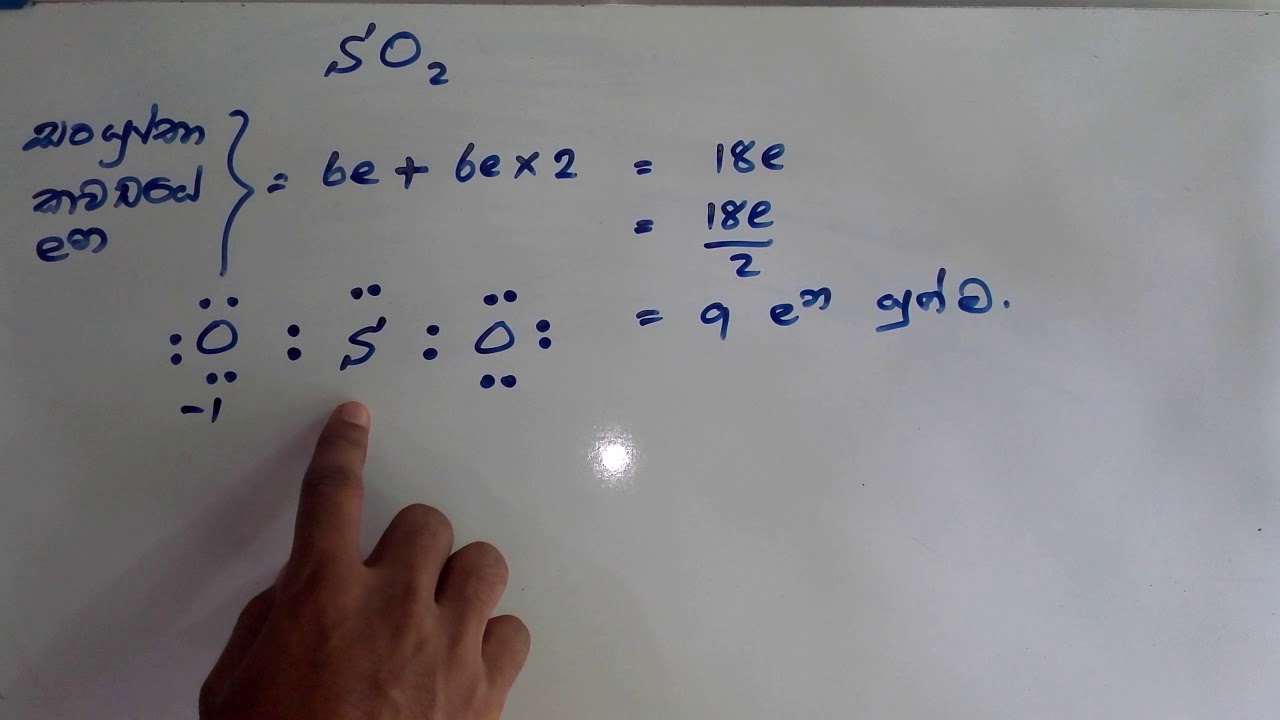 SO₂
සංයුජතා
කවචයේ
eන
= 6e + 6e × 2 = 18e
= 18e/2
= 9 eන යුග්ම.
O : S : O
-1